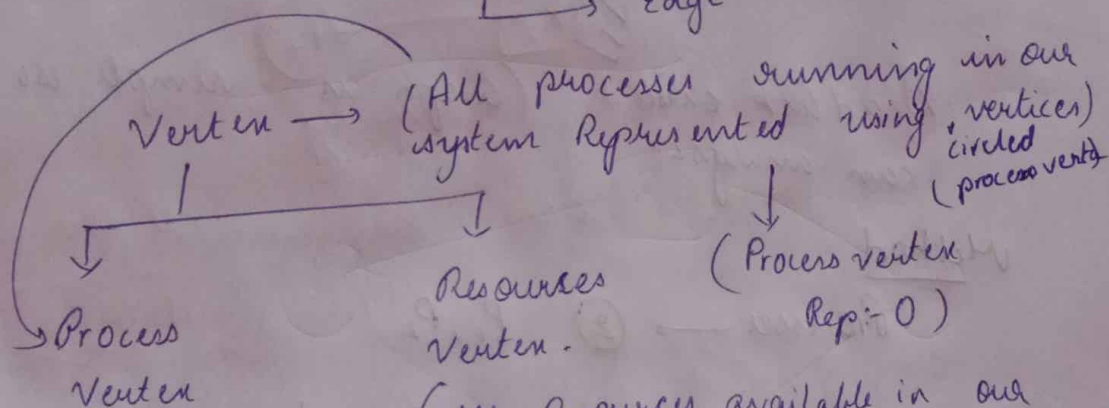 Edge
Vertex → (All processes running in our
system Represented using vertices)
circled
(process vertex
Process
Vertex
Resources
Vertex.
(Process vertex
Rep:- O)
available in our